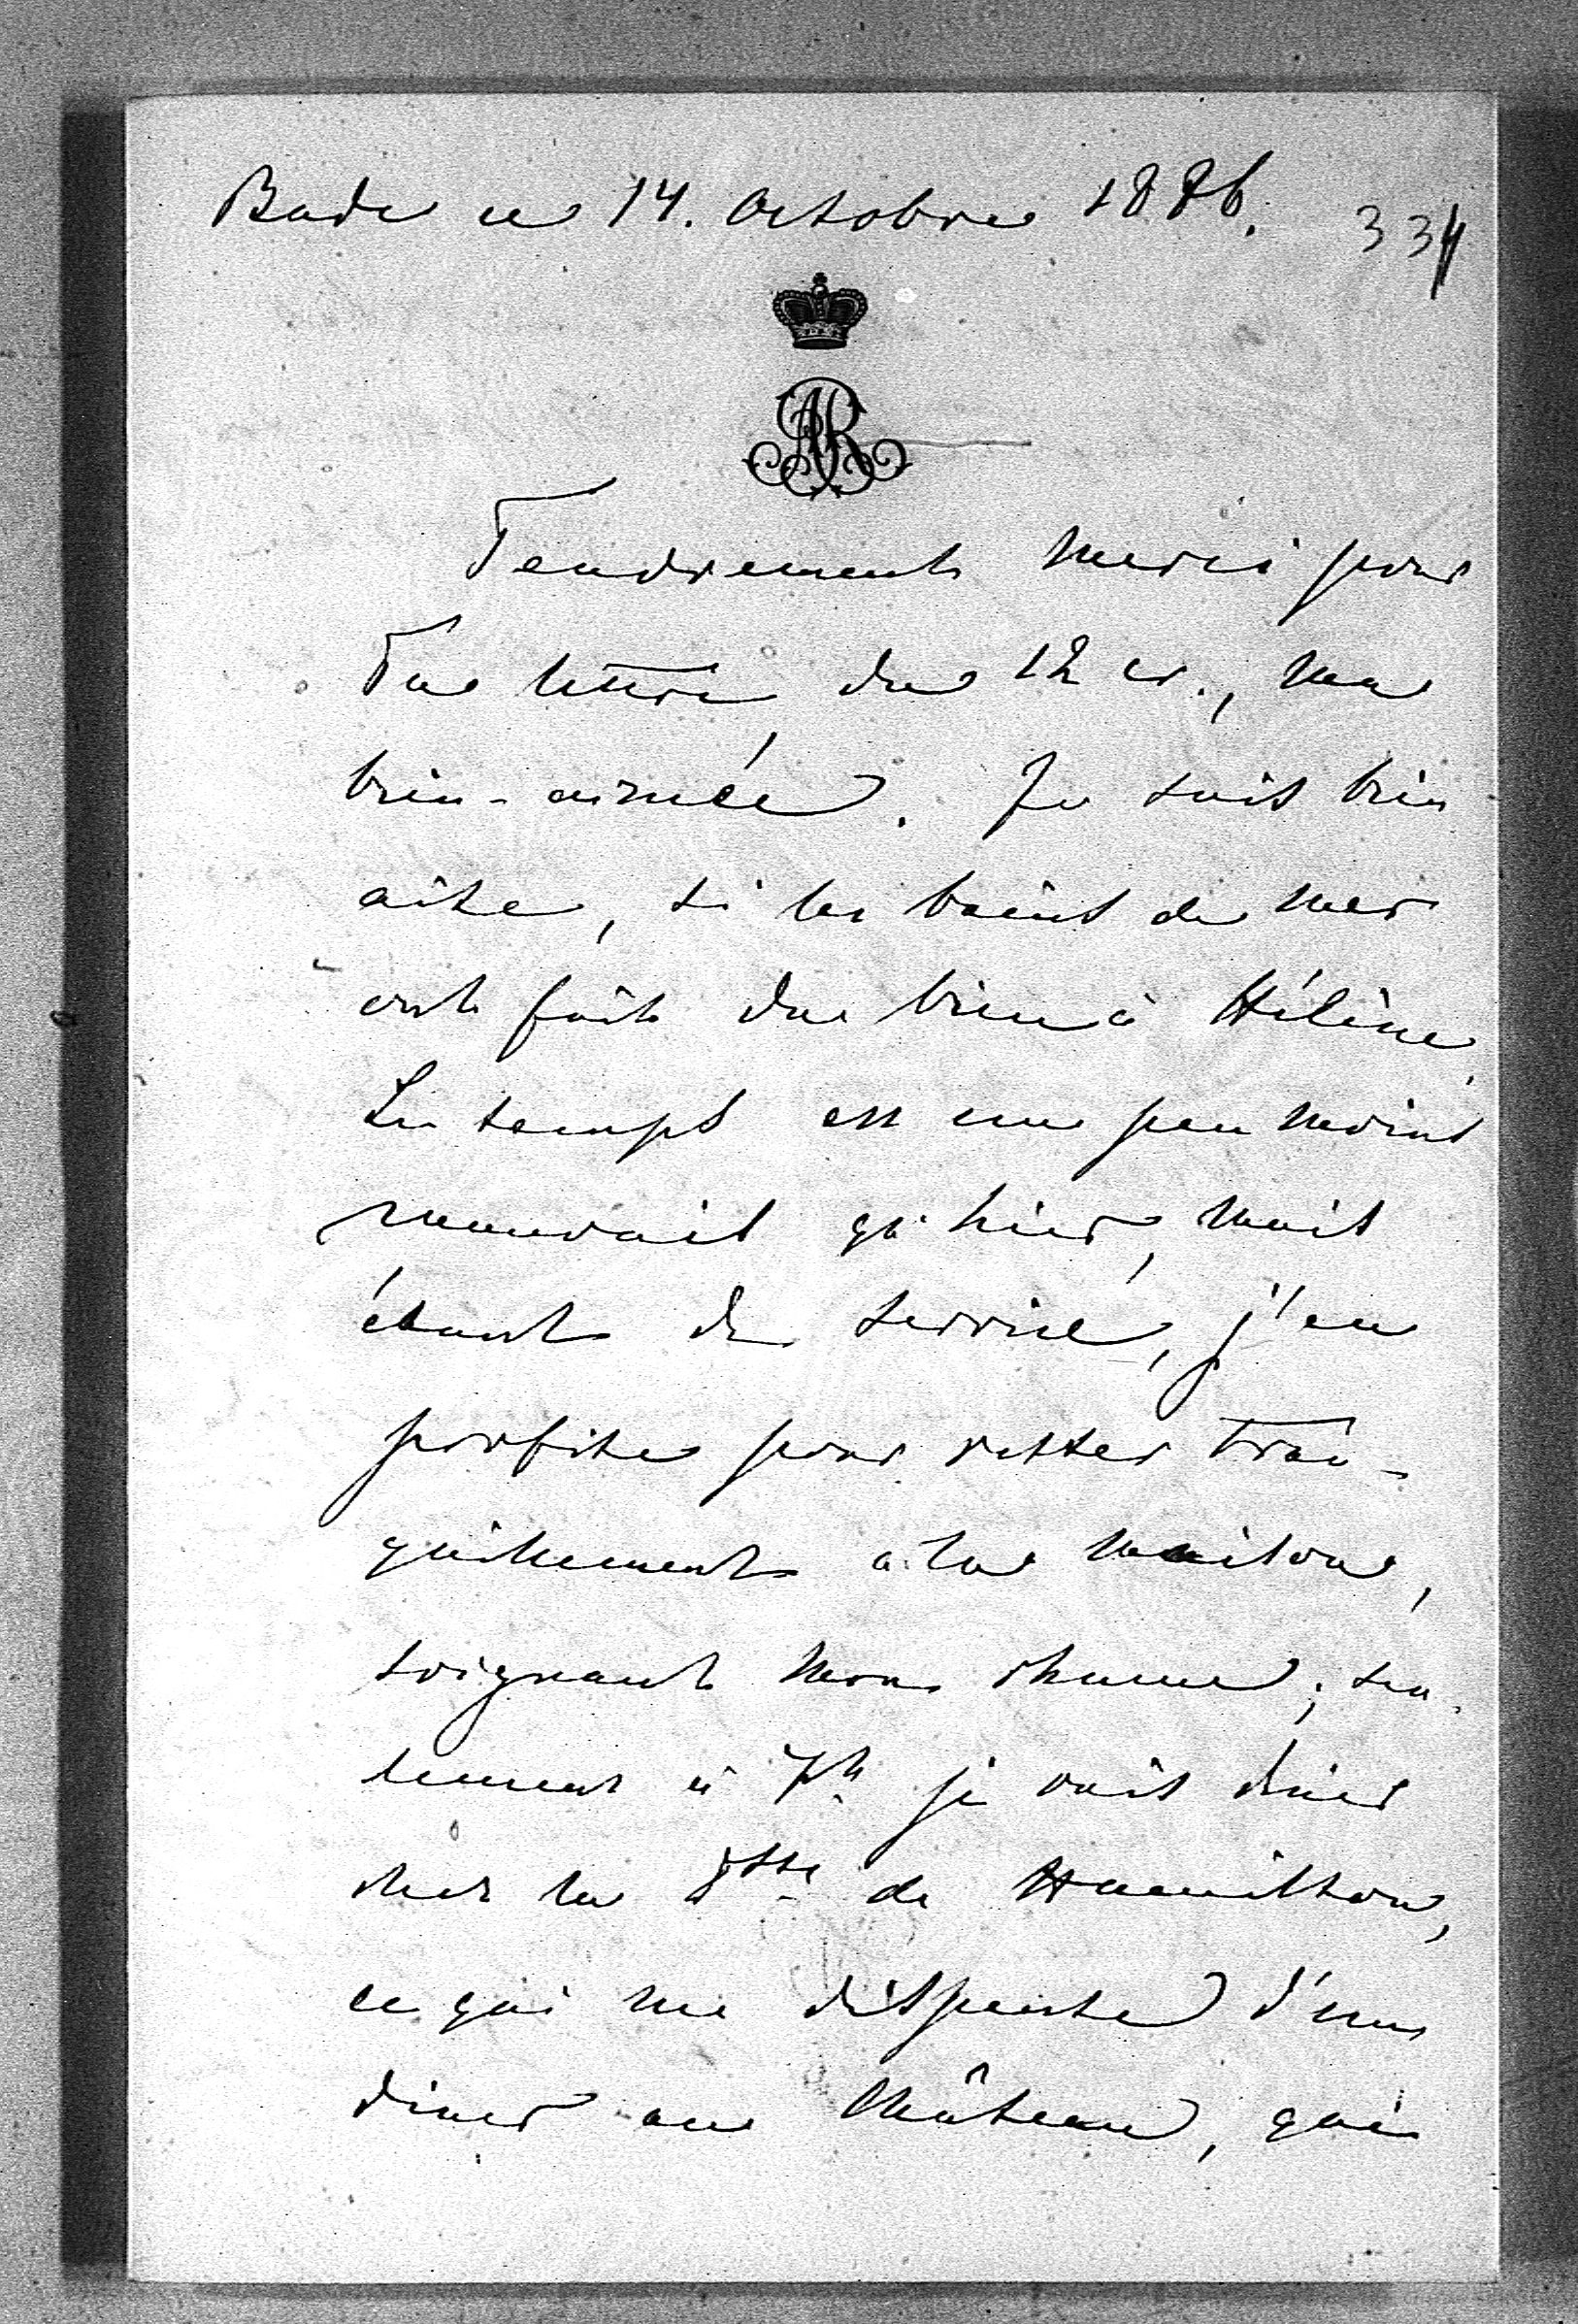 Bade ce 14. Octobre 1886.
334
AR
Tendrement merci pour
Ta lettre du 12 cr., ma
bien-aimée. Je suis bien
aise, si les bains de mer
ont fait du bien à Hélène.
Le temps est un peu moins
mauvais qu'hier, mais
étant de service, j'en
profite pour rester tran-
quillement à la maison,
soignant mon rhume; seu-
lement à 7h je vais diner
chez la Dsse de Hamilton,
ce qui me dispense d'un
diner au Château, qui